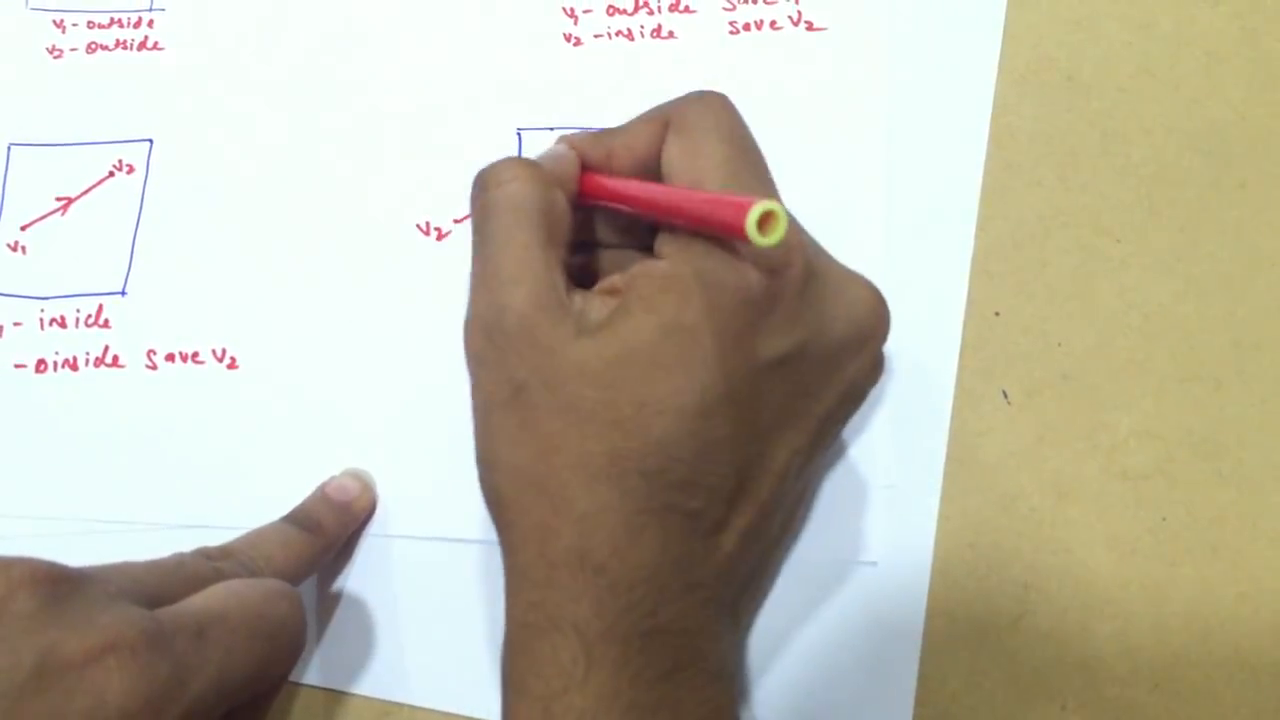 v₁ - outside
v₂ - outside
v₁ - outside save
v₂ - inside save v₂
v₂
v₁
v₂
- inside
- oinside save v₂